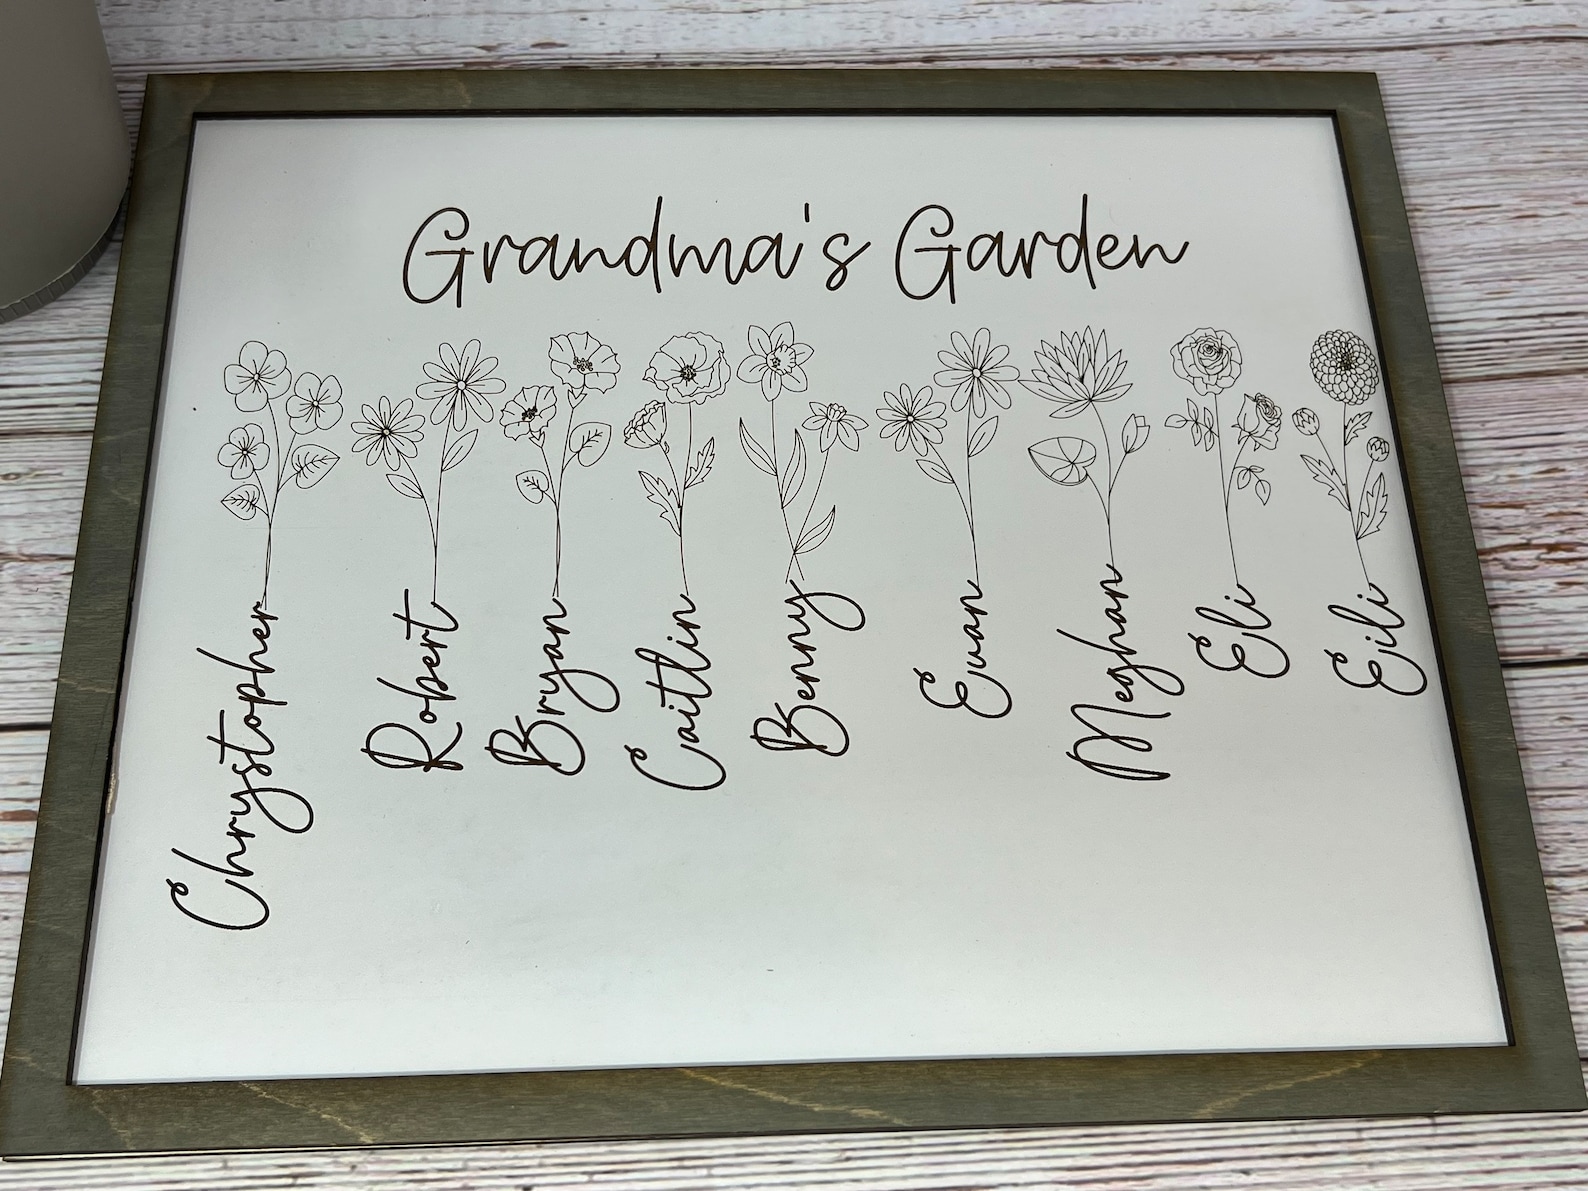 Grandma's Garden
Chrystopher
Robert
Bryan
Caitlin
Benny
Euan
Meghan
Eli
Eili